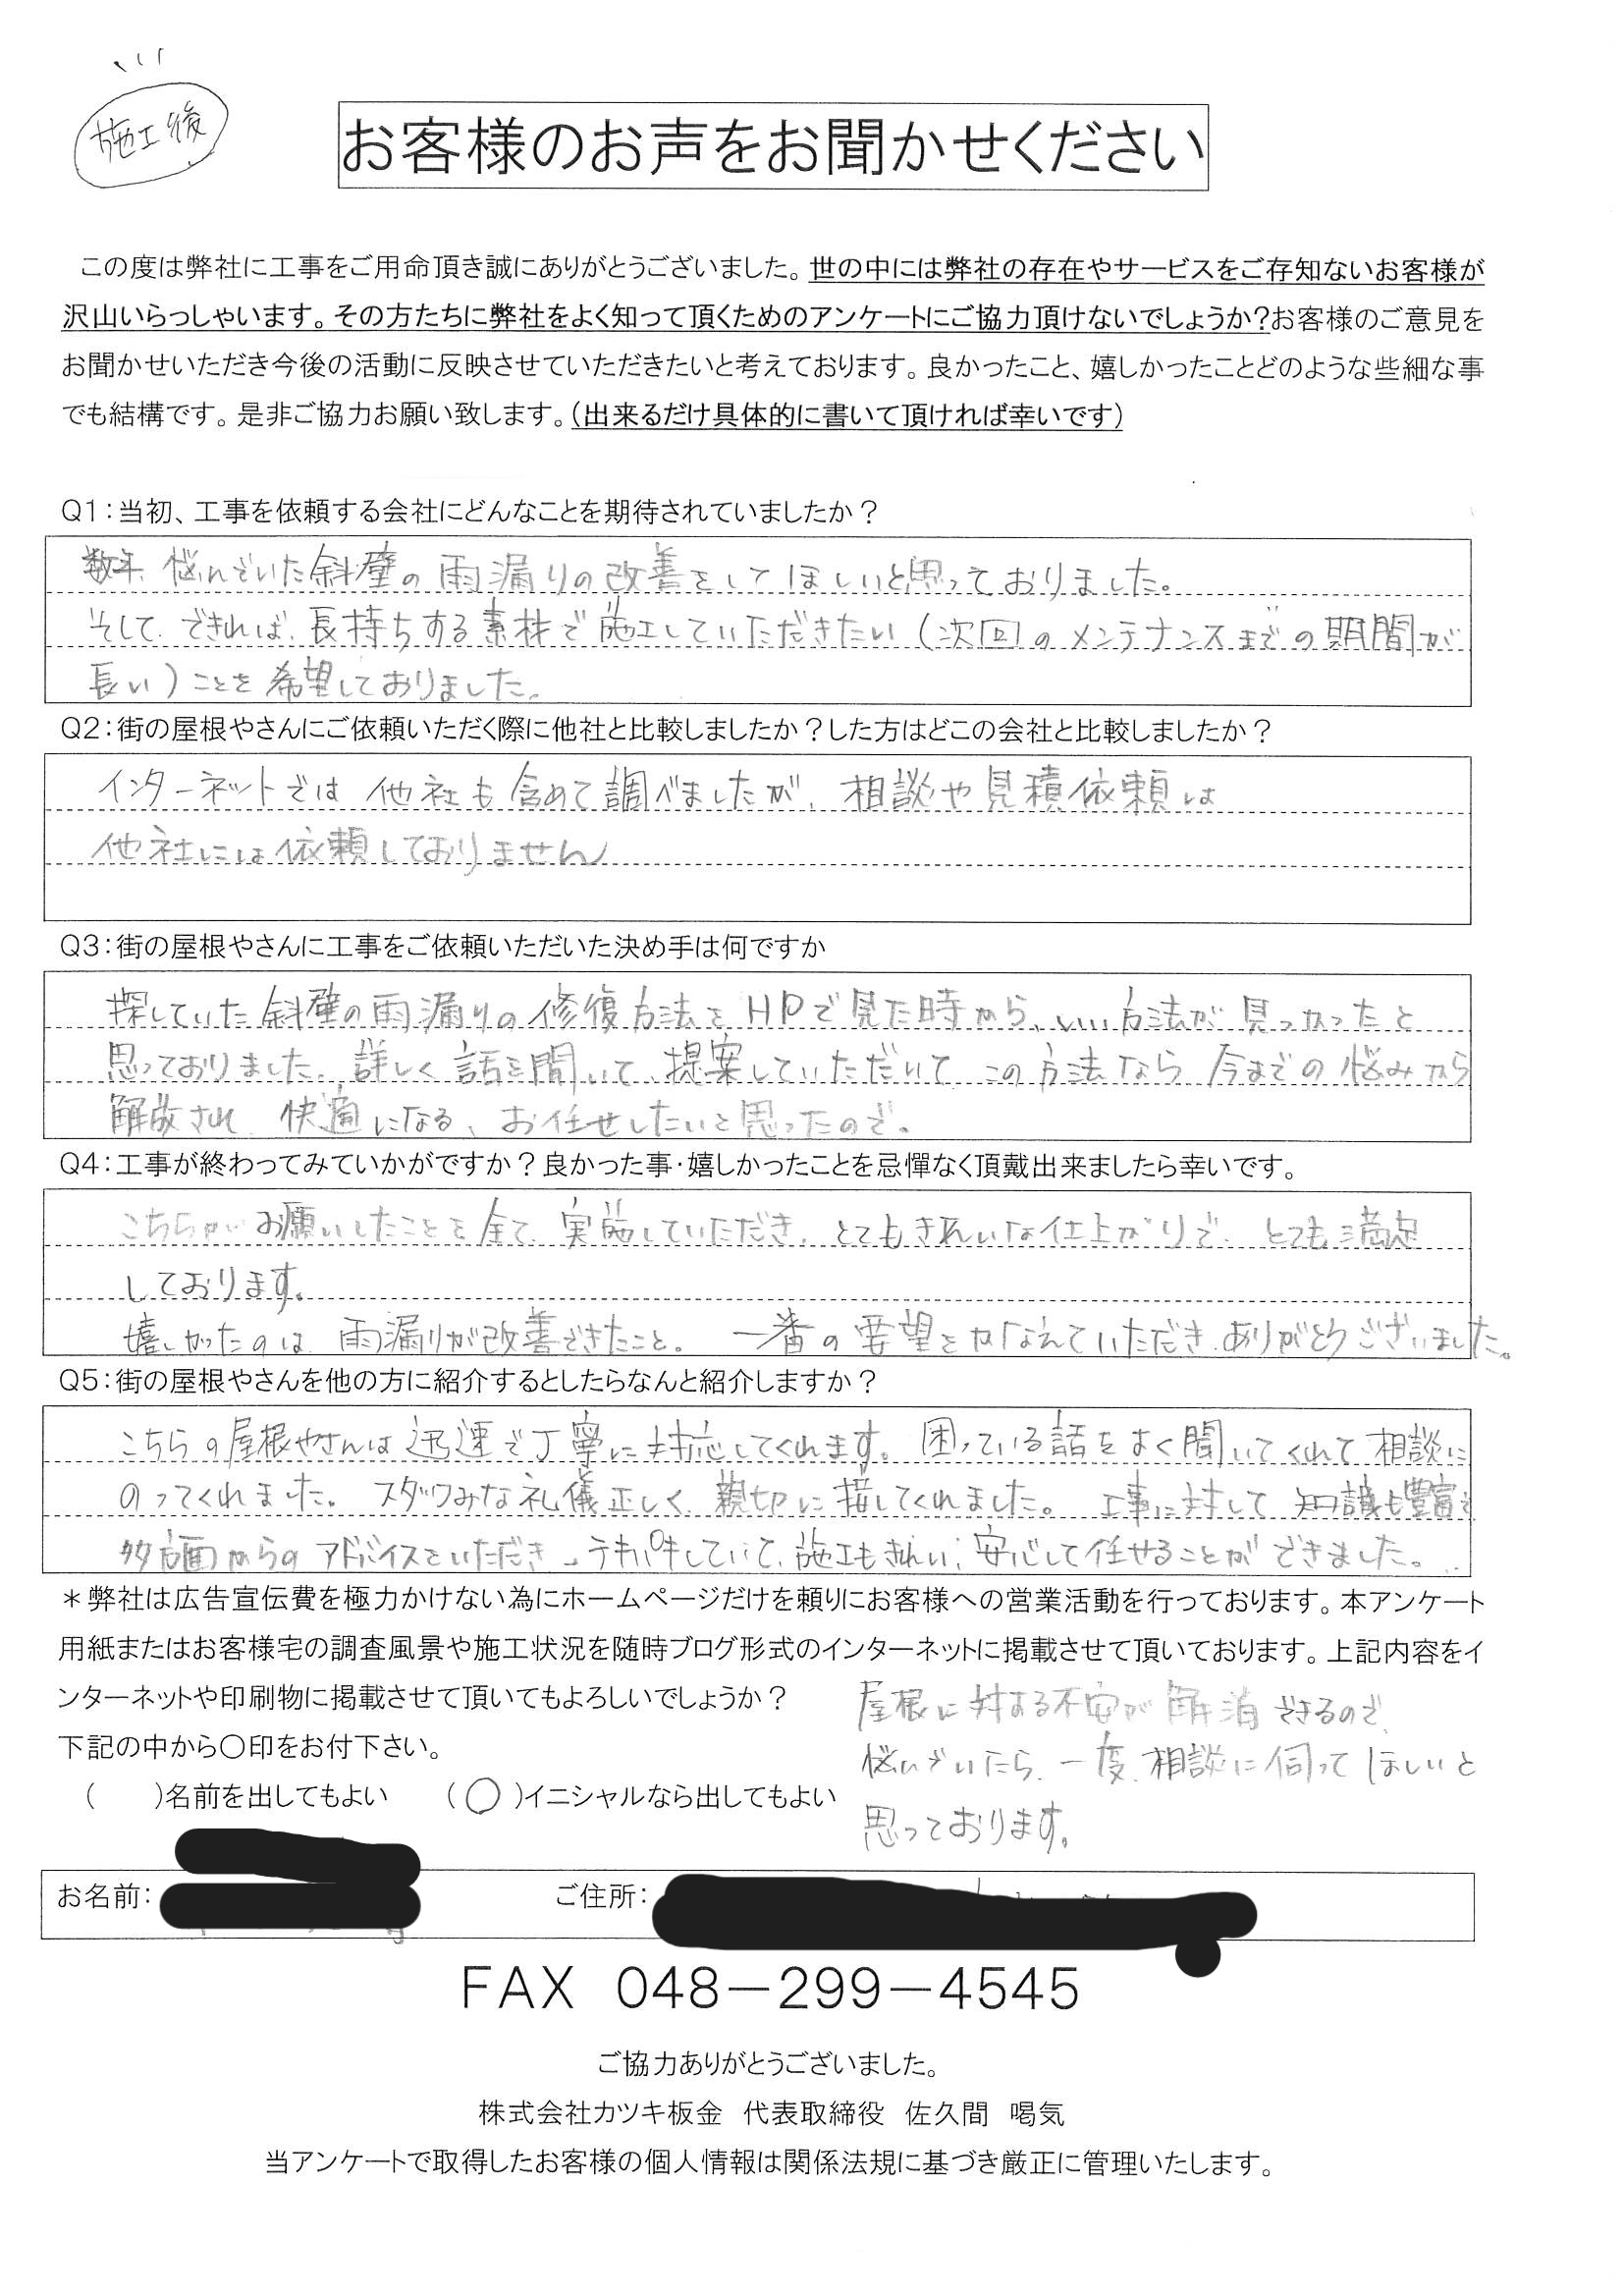 施工後
お客様のお声をお聞かせください
この度は弊社に工事をご用命頂き誠にありがとうございました。世の中には弊社の存在やサービスをご存知ないお客様が
沢山いらっしゃいます。その方たちに弊社をよく知って頂くためのアンケートにご協力頂けないでしょうか?お客様のご意見を
お聞かせいただき今後の活動に反映させていただきたいと考えております。良かったこと、嬉しかったことどのような些細な事
でも結構です。是非ご協力お願い致します。(出来るだけ具体的に書いて頂ければ幸いです)
Q1:当初、工事を依頼する会社にどんなことを期待されていましたか?
数年、悩んでいた斜壁の雨漏りの改善をしてほしいと思っておりました。
そして、できれば、長持ちする素材で施工していただきたい(次回のメンテナンスまでの期間が
長い)ことを希望しておりました。
Q2:街の屋根やさんにご依頼いただく際に他社と比較しましたか?した方はどこの会社と比較しましたか?
インターネットでは他社も含めて調べましたが、相談や見積依頼は
他社には依頼しておりません
Q3:街の屋根やさんに工事をご依頼いただいた決め手は何ですか
探していた斜壁の雨漏りの修復方法をHPで見た時から、いい方法が見つかったと
思っておりました。詳しく話を聞いて、提案していただいて、この方法なら今までの悩みから
解放され、快適になる、お任せしたいと思ったので。
Q4:工事が終わってみていかがですか?良かった事・嬉しかったことを忌憚なく頂戴出来ましたら幸いです。
こちらがお願いしたことを全て、実施していただき、とてもきれいな仕上がりで、とても満足
しております。
嬉しかったのは、雨漏りが改善できたこと。一番の要望をかなえていただき、ありがとうございました。
Q5:街の屋根やさんを他の方に紹介するとしたらなんと紹介しますか?
こちらの屋根やさんは迅速で丁寧に対応してくれます。困っている話をよく聞いてくれて相談に
のってくれました。スタッフみな礼儀正しく、親切に接してくれました。工事に対して知識も豊富で
多方面からのアドバイスをいただき、テキパキしていて、施工もきれい、安心して任せることができました。
*弊社は広告宣伝費を極力かけない為にホームページだけを頼りにお客様への営業活動を行っております。本アンケート
用紙またはお客様宅の調査風景や施工状況を随時ブログ形式のインターネットに掲載させて頂いております。上記内容をイ
ンターネットや印刷物に掲載させて頂いてもよろしいでしょうか?
下記の中から〇印をお付下さい。
( )名前を出してもよい (〇)イニシャルなら出してもよい
屋根に対する不安が解消できるので、
悩んでいたら、一度、相談に伺ってほしいと
思っております。
お名前: ご住所:
FAX 048-299-4545
ご協力ありがとうございました。
株式会社カツキ板金 代表取締役 佐久間 喝気
当アンケートで取得したお客様の個人情報は関係法規に基づき厳正に管理いたします。